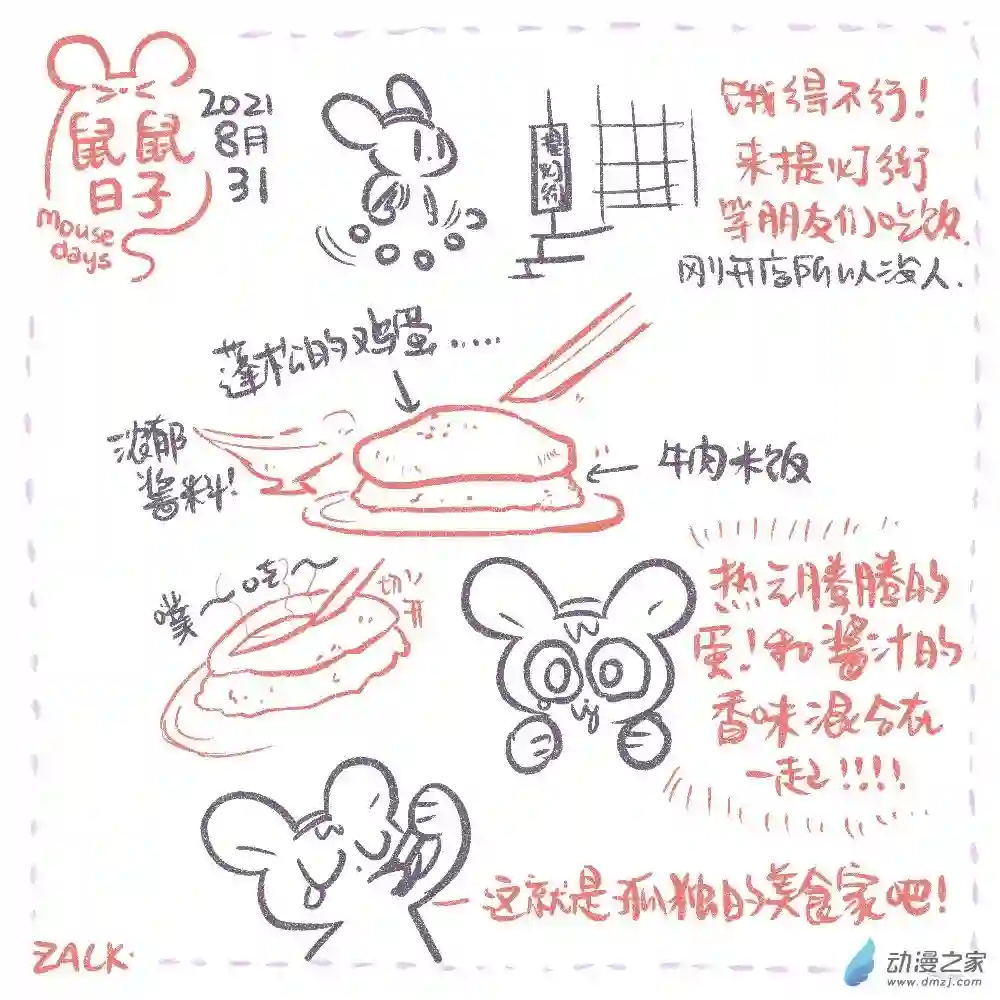 鼠鼠
日子
mouse
days
2021
8月
31
提灯街
饿得不行!
来提灯街
等朋友们吃饭.
刚开店所以没人.
蓬松的鸡蛋.....
浓郁
酱料!
牛肉米饭
噗~哇~
切开
热气腾腾的
蛋!和酱汁的
香味混合在
一起!!!!
这就是孤独的美食家吧!
ZALK.
动漫之家
www.dmzj.com